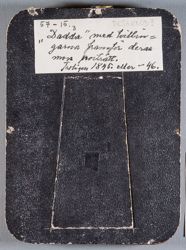 57-15.3
"Dadda" med tvillin=
garna framför deras
mors porträtt.
Troligen 1895 eller -96.